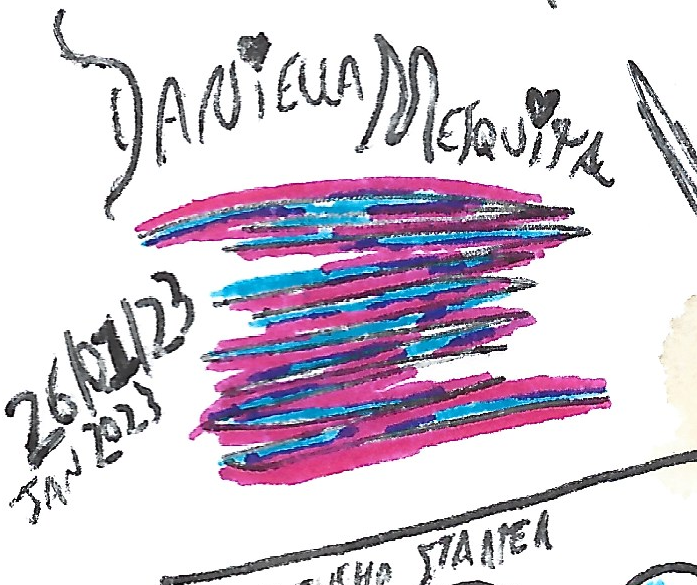 DANiELLA MESQUiTA
26/01/23
JAN 2023